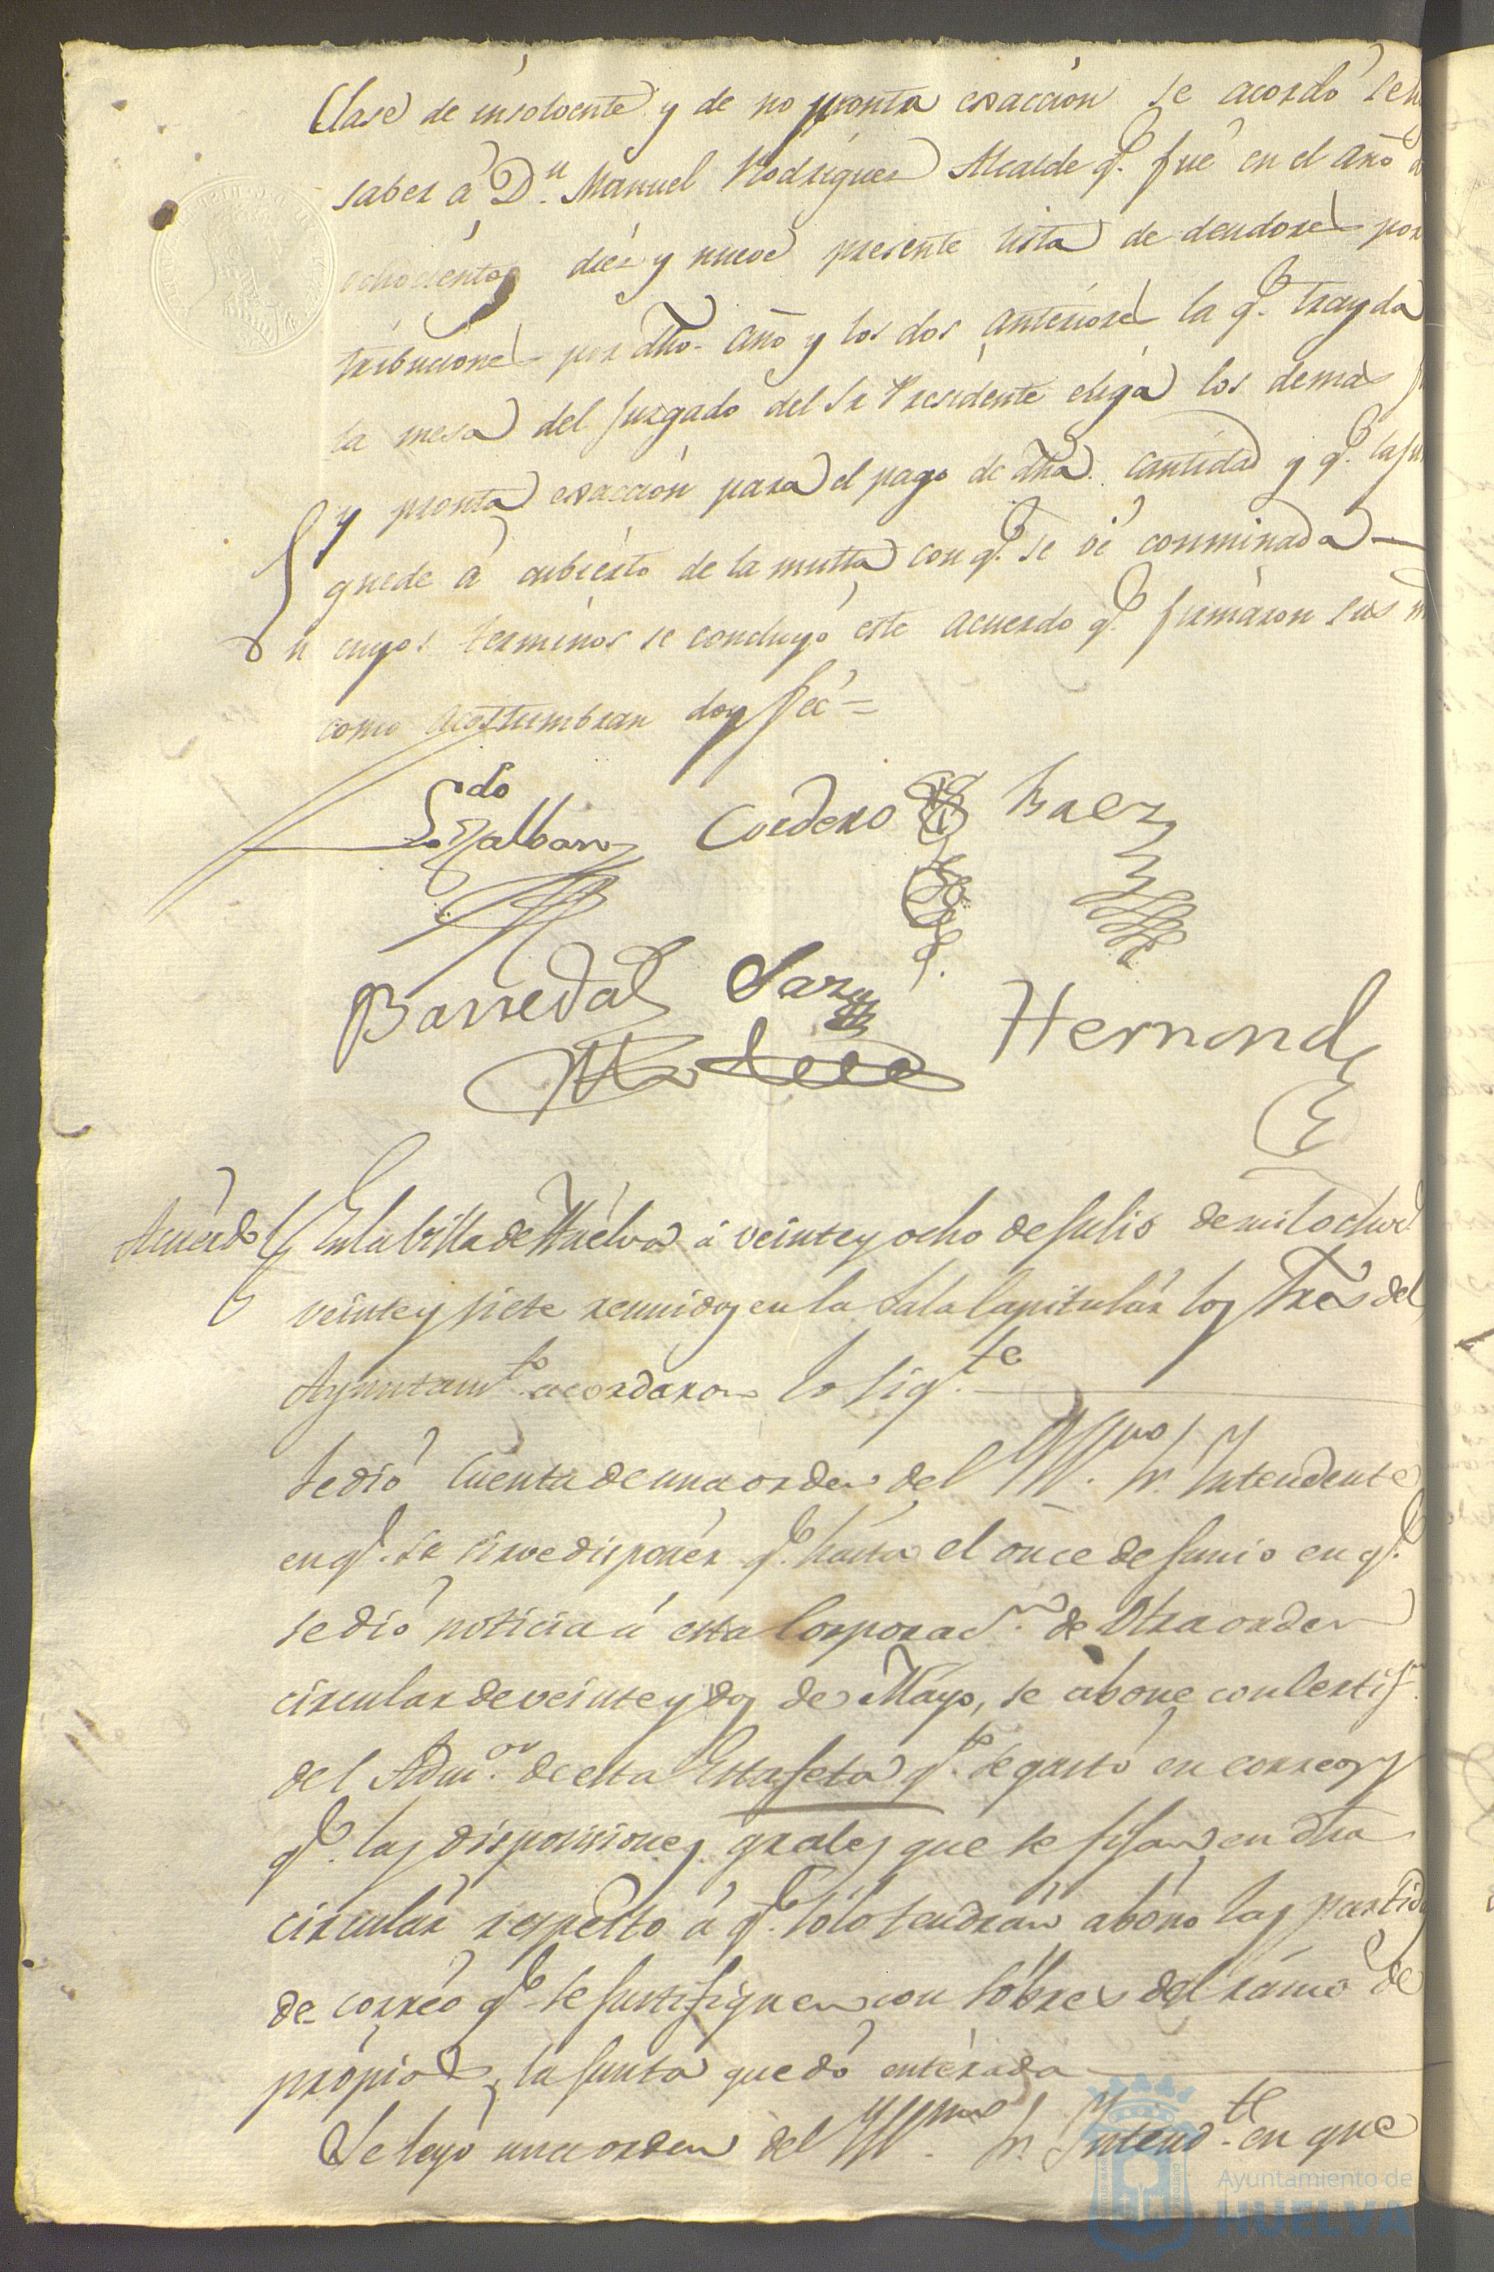 Clase de insolvente y de no pronta exaccion se acordó se h
saber á Dn. Manuel Rodriguez Alcalde q.e fué en el año d
ochocientos diez y nueve presente lista de deudores por
tribuciones por dho. año y los dos anteriores la q.e trayda
la mesa del Juzgado del Sr Presidente eliga los demas
y pronta exaccion para el pago de dha. cantidad y q.e la Ju
quede á cubierto de la multa con q.e se vé conminada
En cuyos terminos se concluyó este acuerdo q.e firmaron sus m
como acostumbran doy fée =
Ldo Cordero Baez
Barreda Hernand
Acuerdo En la Villa de Huelva á veinte y ocho de Julio de mil ochoc
veinte y siete reunidos en la Sala Capitulár los Sres del
Ayuntam.to acordaron lo sig.te
Se dió Cuenta de una orden del Yll.mo Sr. Yntendente
en q.e se sirve disponér q.e hasta el once de Junio en q.e
se dió noticia á esta Corporac.n de Otra orden
circular de veinte y dos de Mayo, se abone con Certif.
del Adm.or de esta Estafeta q.to se gastó en correos y
q.e las disposiciones grales que se fijan en dha
circulár respecto á q.e sólo tendrán abóno las partid
de corréo q.e se justifiquen con sóbres del rámo de
própios, la Junta quedó enterada
Se leyó una orden del Yll.mo Sr. Yntend.te en que
Ayuntamiento de
HUELVA